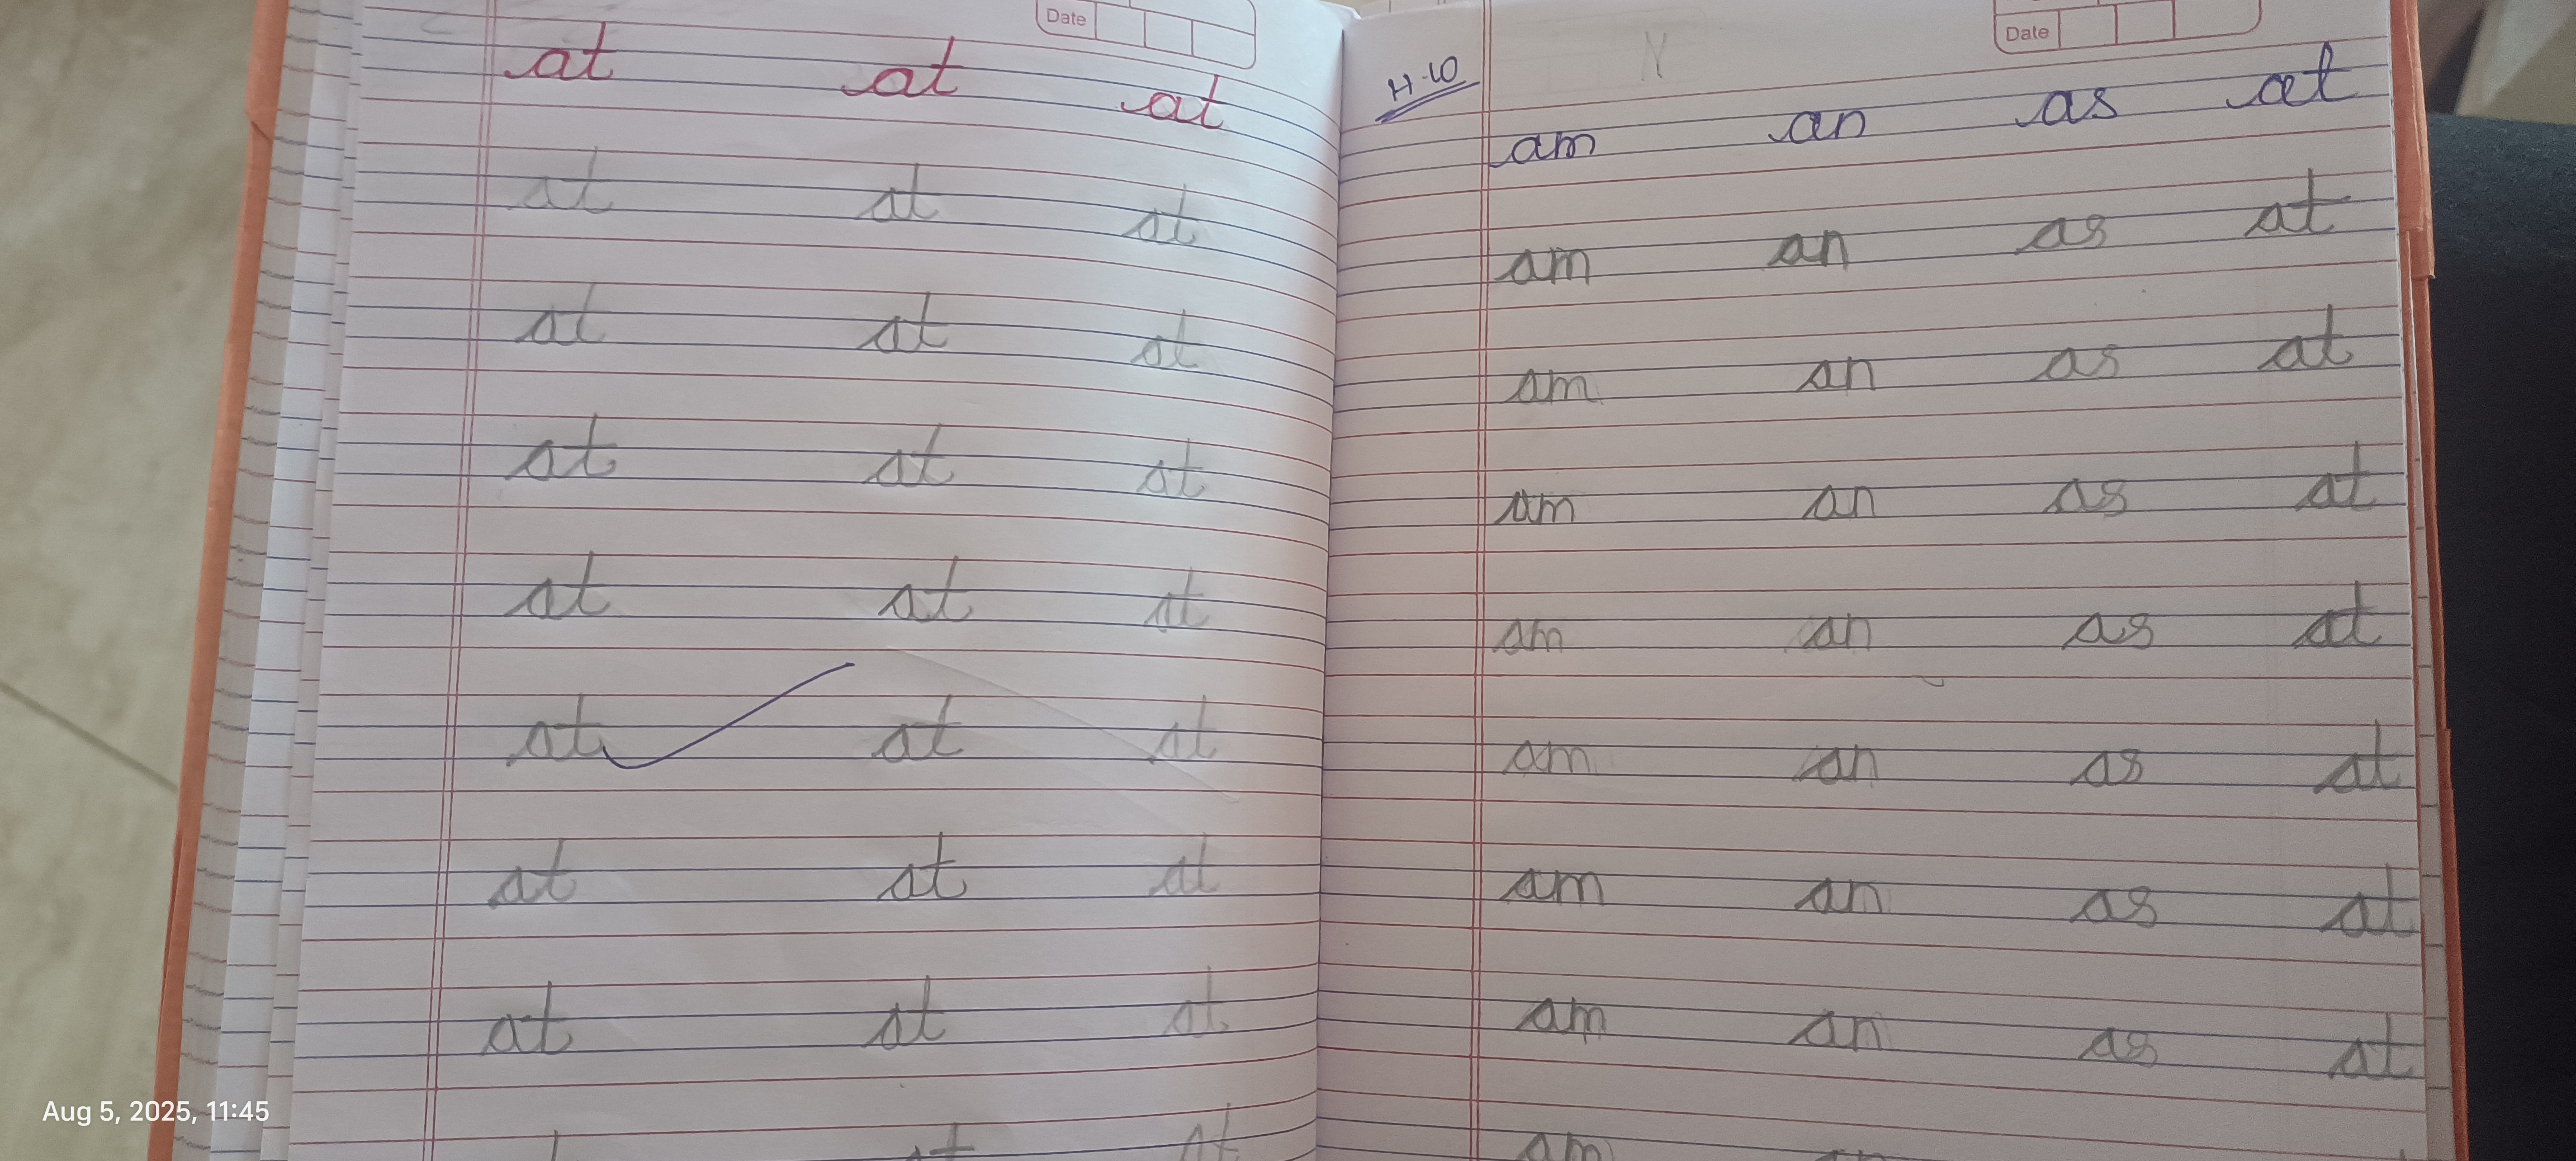 Date
at at at
at at at
at at at
at at at
at at at
at at at
at at at
at at at
at at
Date
H.W
N
am an as at
am an as at
am an as at
am an as at
am an as at
am an as at
am an as at
am an as at
am
Aug 5, 2025, 11:45